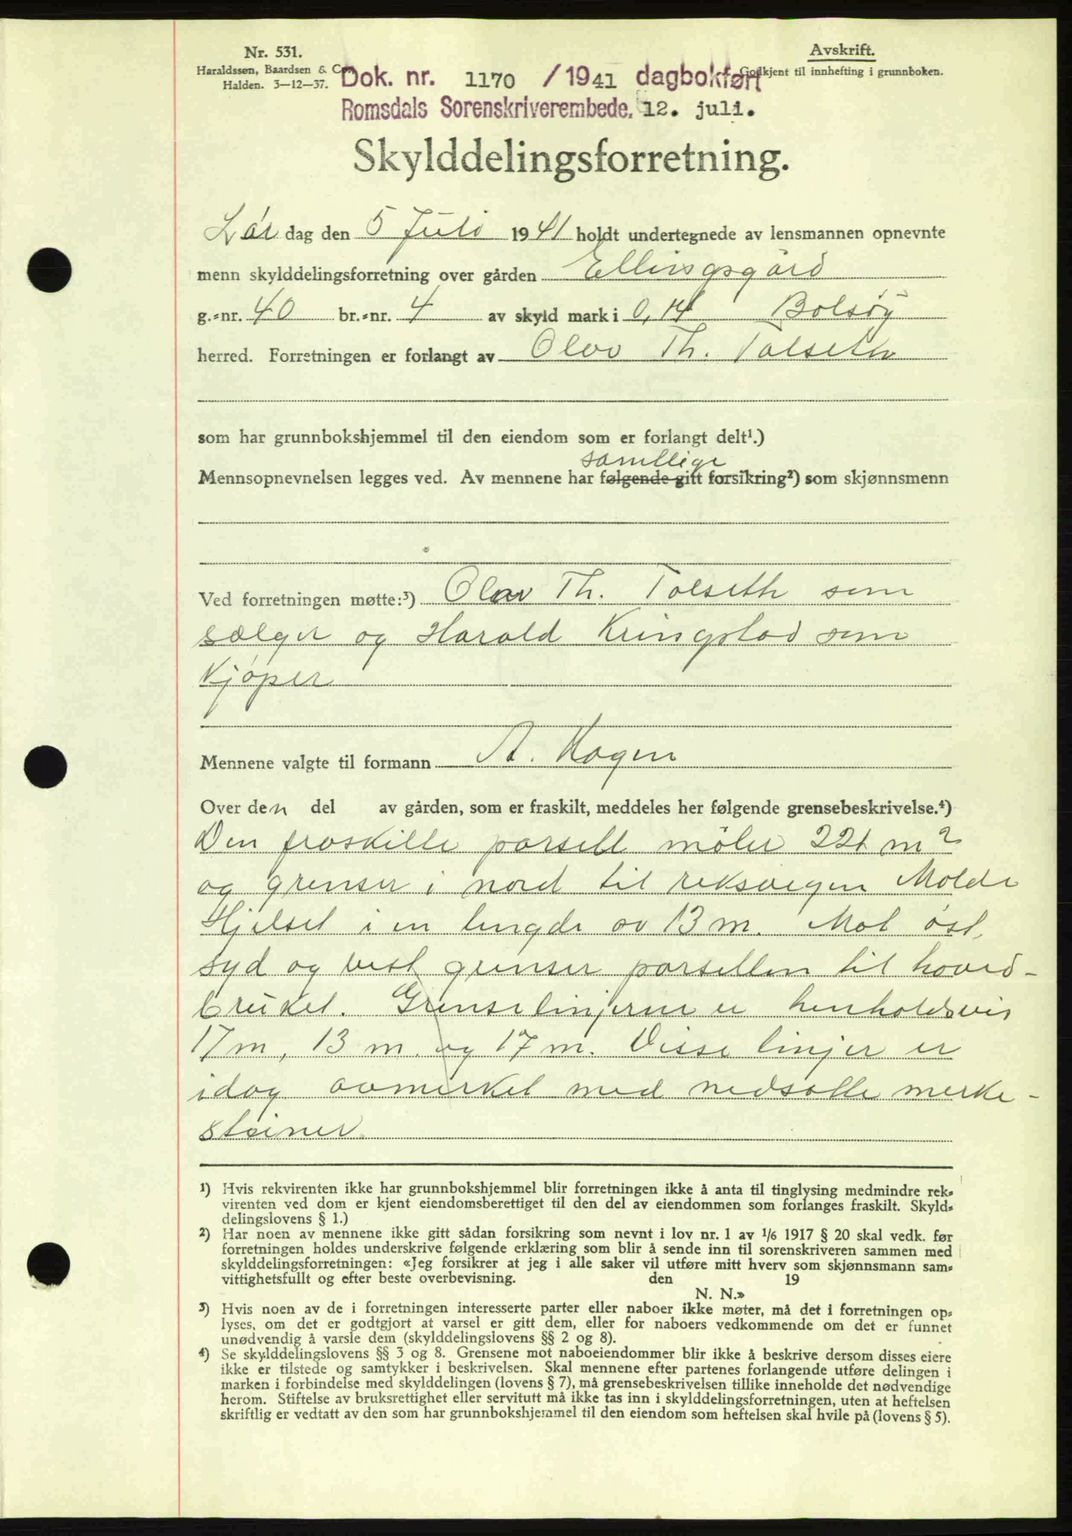 Nr. 531.
Haraldssen, Baardsen & Co.
Halden. 3-12-37.
Avskrift.
Godkjent til innhefting i grunnboken.
Dok. nr. 1170 / 1941 dagbokført
Romsdals Sorenskriverembede, 12. juli.
Skylddelingsforretning.
Lør dag den 5 Juli 1941 holdt undertegnede av lensmannen opnevnte
menn skylddelingsforretning over gården Ellingsgård
g.-nr. 40 br.-nr. 4 av skyld mark i 0,14 Bolsøy
herred. Forretningen er forlangt av Olav Th. Tolseth
som har grunnbokshjemmel til den eiendom som er forlangt delt¹.)
samtlige
Mennsopnevnelsen legges ved. Av mennene har følgende gitt forsikring²) som skjønnsmenn
Ved forretningen møtte:³) Olav Th. Tolseth som
sælger og Harald Kringstad som
kjøper
Mennene valgte til formann A. Hagen
Over den del av gården, som er fraskilt, meddeles her følgende grensebeskrivelse.⁴)
Den fraskilte parsell måler 221 m²
og grenser i nord til riksvegen Molde
Hjelset i en lengde av 13 m. Mot øst,
syd og vest grenser parsellen til hoved-
bruket. Grenselinjerne er henholdsvis
17 m, 13 m. og 17 m. Disse linjer er
idag avmerket med nedsatte merke-
steiner.
¹) Hvis rekvirenten ikke har grunnbokshjemmel blir forretningen ikke å anta til tinglysing medmindre rek-
virenten ved dom er kjent eiendomsberettiget til den del av eiendommen som forlanges fraskilt. Skyld-
delingslovens § 1.)
²) Har noen av mennene ikke gitt sådan forsikring som nevnt i lov nr. 1 av 1/6 1917 § 20 skal vedk. før
forretningen holdes underskrive følgende erklæring som blir å sende inn til sorenskriveren sammen med
skylddelingsforretningen: «Jeg forsikrer at jeg i alle saker vil utføre mitt hverv som skjønnsmann sam-
vittighetsfullt og efter beste overbevisning. den 19
N. N.»
³) Hvis noen av de i forretningen interesserte parter eller naboer ikke møter, må det i forretningen op-
lyses, om det er godtgjort at varsel er gitt dem, eller for naboers vedkommende om det er funnet
unødvendig å varsle dem (skylddelingslovens §§ 2 og 8).
⁴) Se skylddelingslovens §§ 3 og 8. Grensene mot naboeiendommer blir ikke å beskrive dersom disses eiere
ikke er tilstede og samtykker i beskrivelsen. Skal mennene efter partenes forlangende utføre delingen i
marken i forbindelse med skylddelingen (lovens § 7), må grensebeskrivelsen tillike inneholde det nødvendige
herom. Stiftelse av bruksrettighet eller servitutt må ikke tas inn i skylddelingsforretningen, uten at heftelsen
skriftlig er vedtatt av den som har grunnbokshjemmel til den eiendom som heftelsen skal hvile på (lovens § 5).